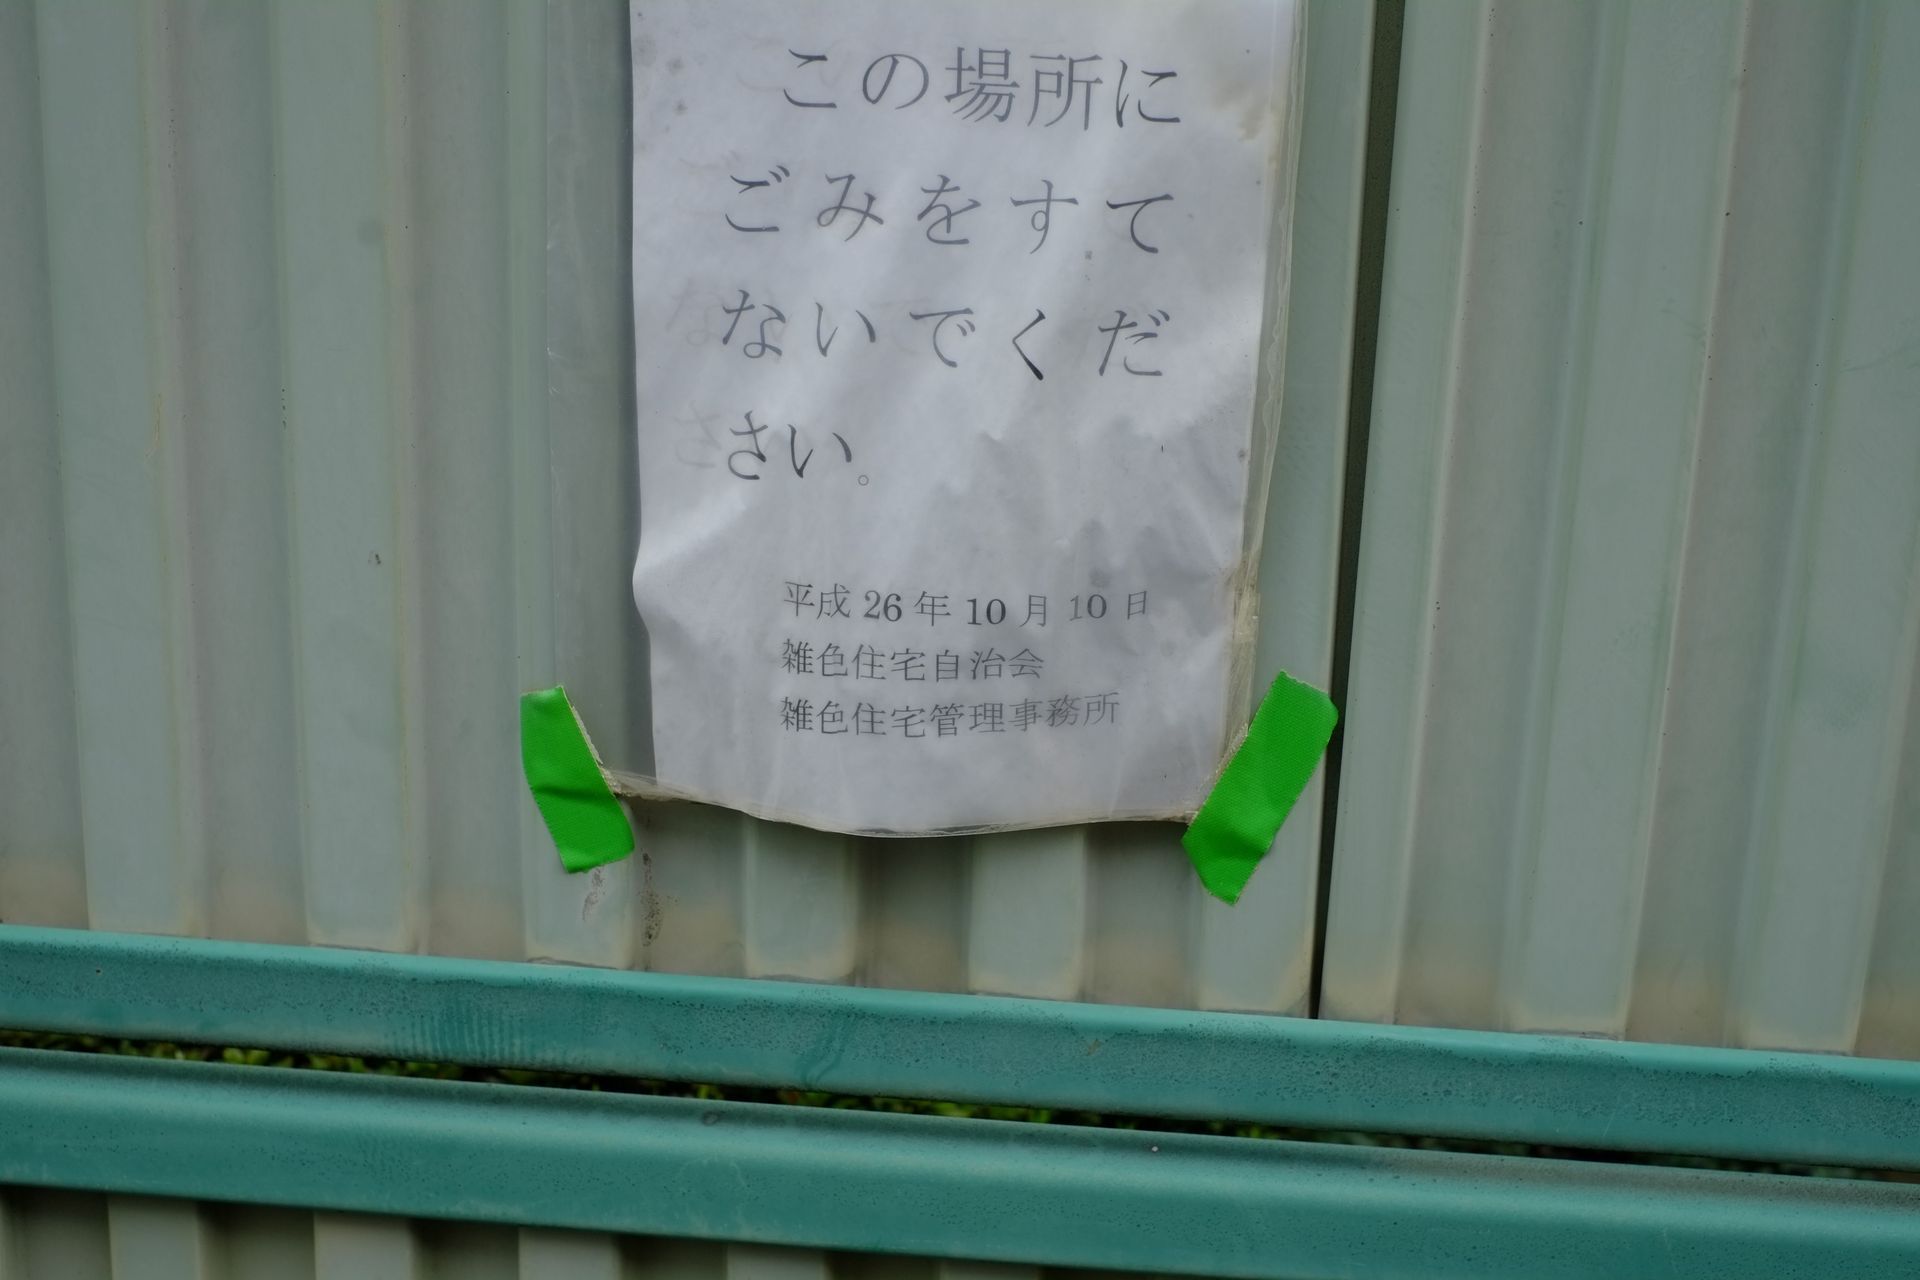 この場所に
ごみをすて
ないでくだ
さい。
平成26年10月10日
雑色住宅自治会
雑色住宅管理事務所